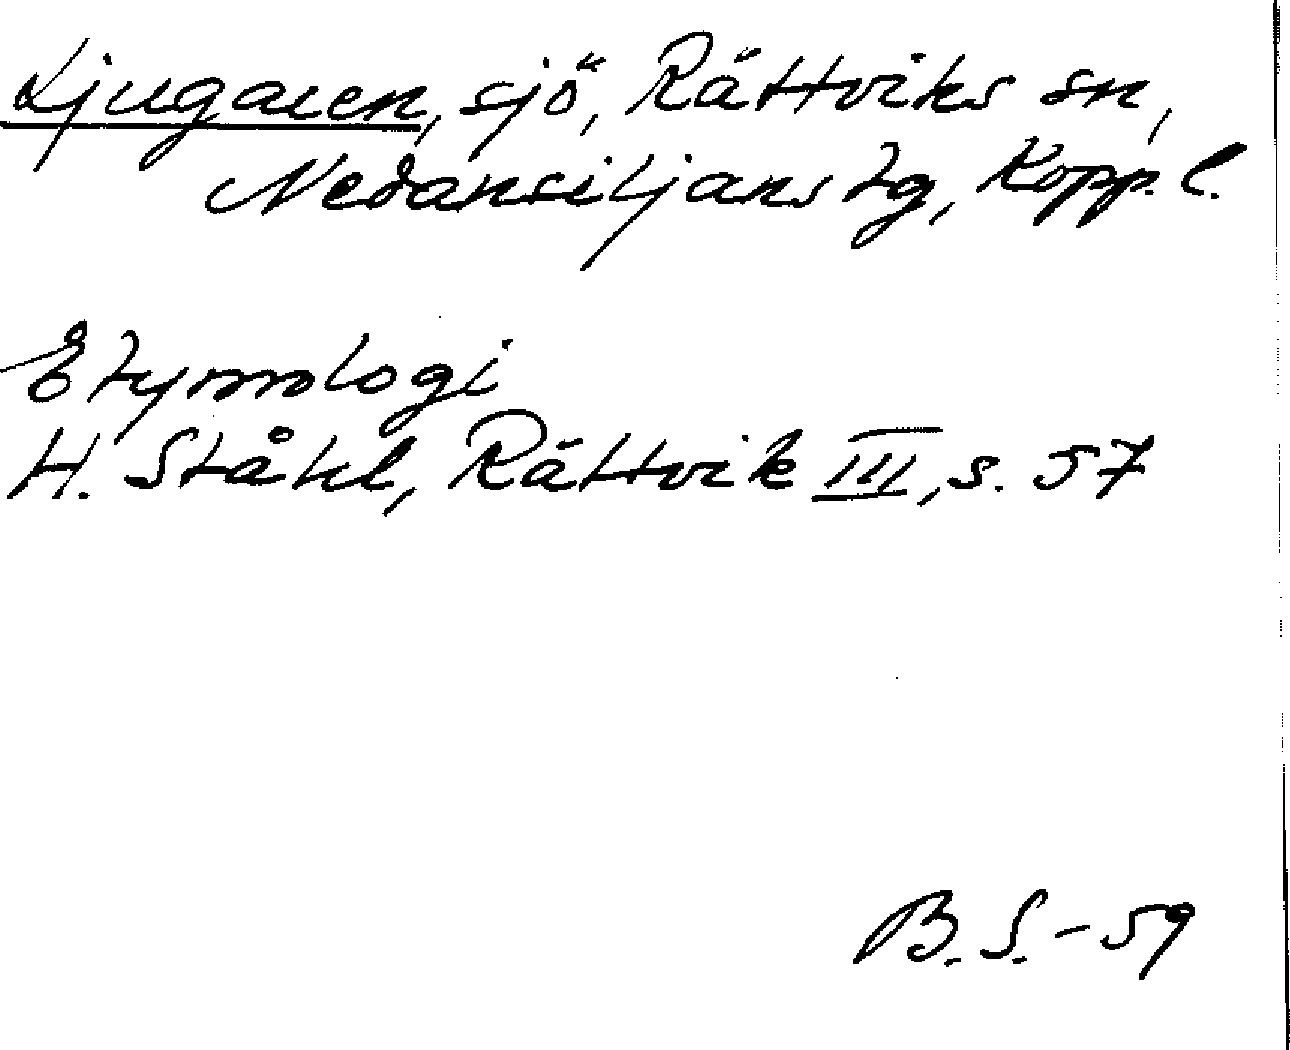 Ljugaren, sjö, Rättviks sn,
Nedansiljans tg, Kopp. l.
Etymologi
H. Ståhl, Rättvik III, s. 57
B. S. - 59